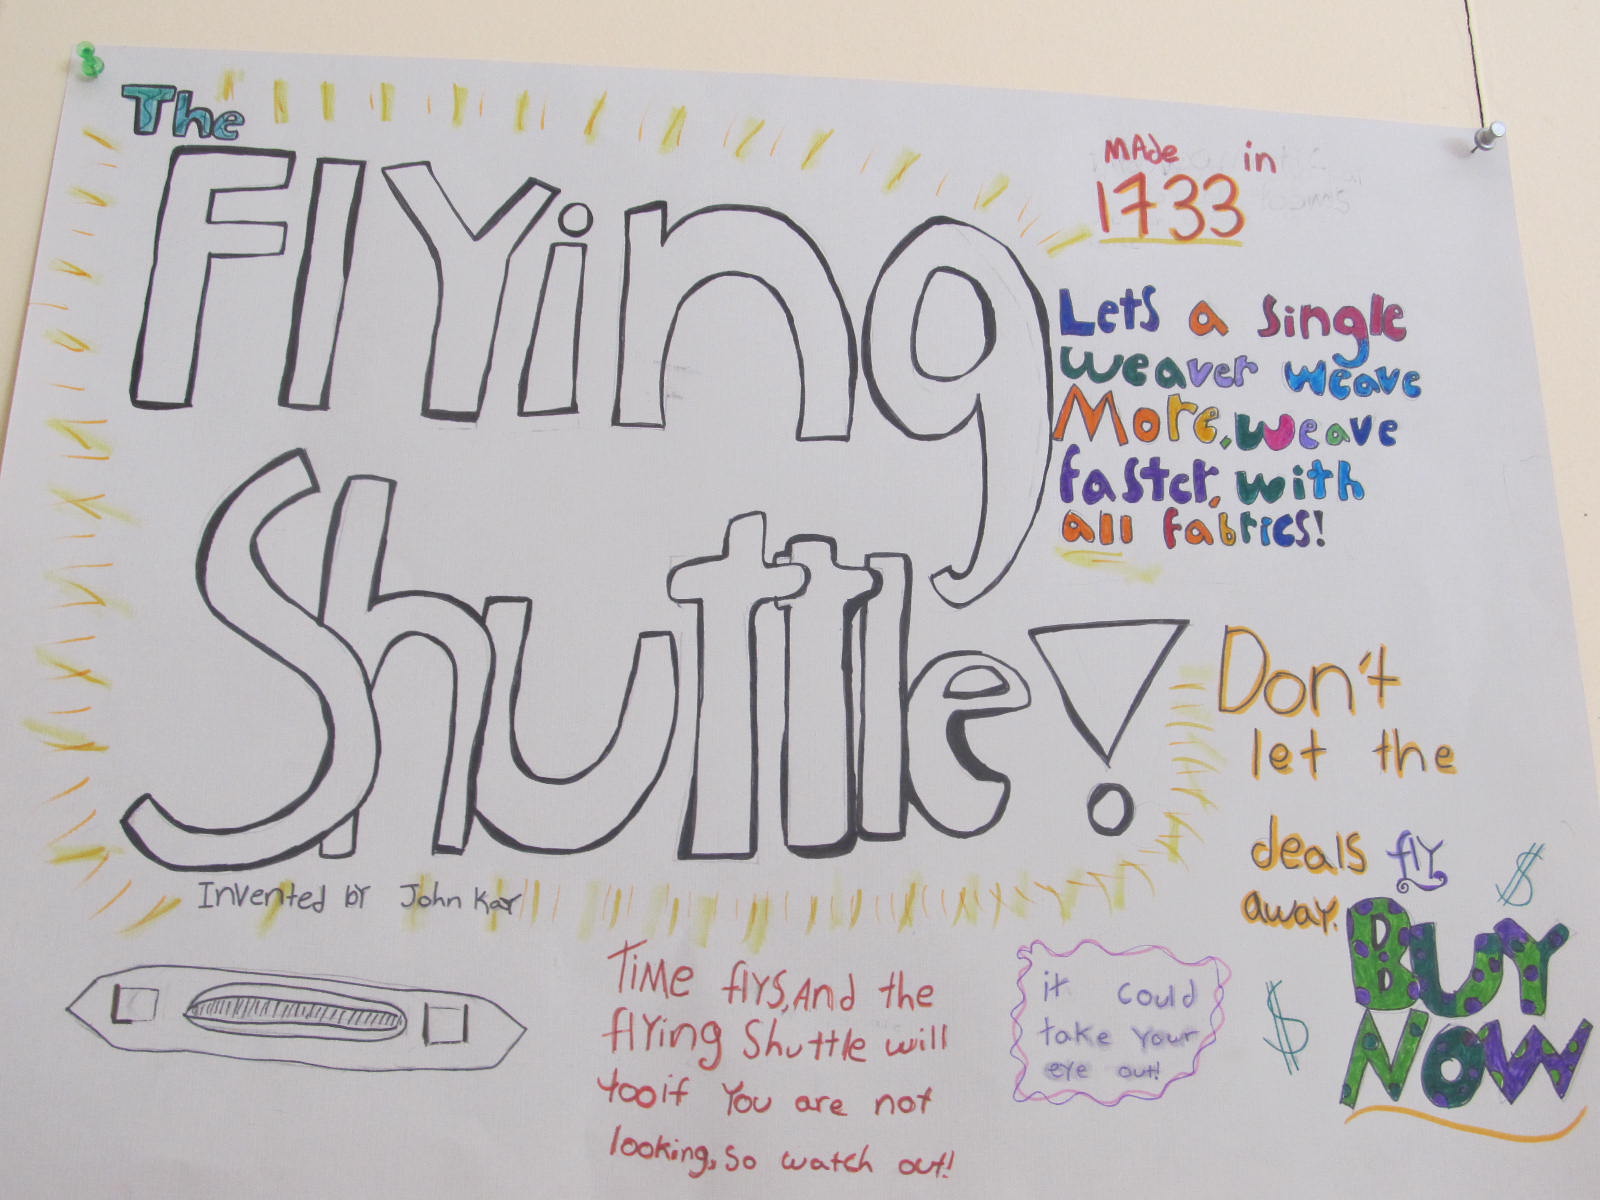 The
FlYing
Shuttle!
Invented bY John Kay
MAde in
1733
Lets a single
weaver weave
More, weave
faster, with
all fabrics!
Don't
let the
deals flY
away.
BUY
NOW
$
$
Time flYs, And the
flYing Shuttle will
too if You are not
looking, so watch out!
it could
take Your
eye out!